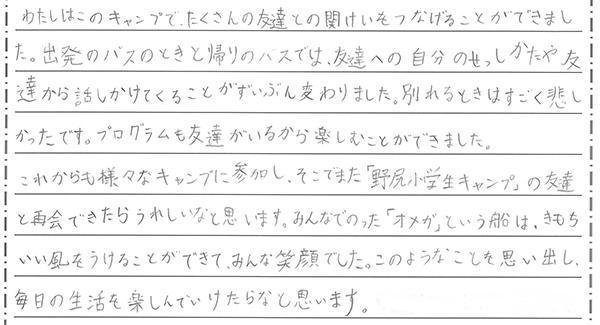 わたしはこのキャンプで、たくさんの友達との関けいをつなげることができまし
た。出発のバスのときと帰りのバスでは、友達への自分のせっしかたや友
達から話しかけてくることがずいぶん変わりました。別れるときはすごく悲し
かったです。プログラムも友達がいるから楽しむことができました。
これからも様々なキャンプに参加し、そこでまた「野尻小学生キャンプ」の友達
と再会できたらうれしいなと思います。みんなでのった「オメガ」という船は、きもち
いい風をうけることができて、みんな笑顔でした。このようなことを思い出し、
毎日の生活を楽しんでいけたらなと思います。